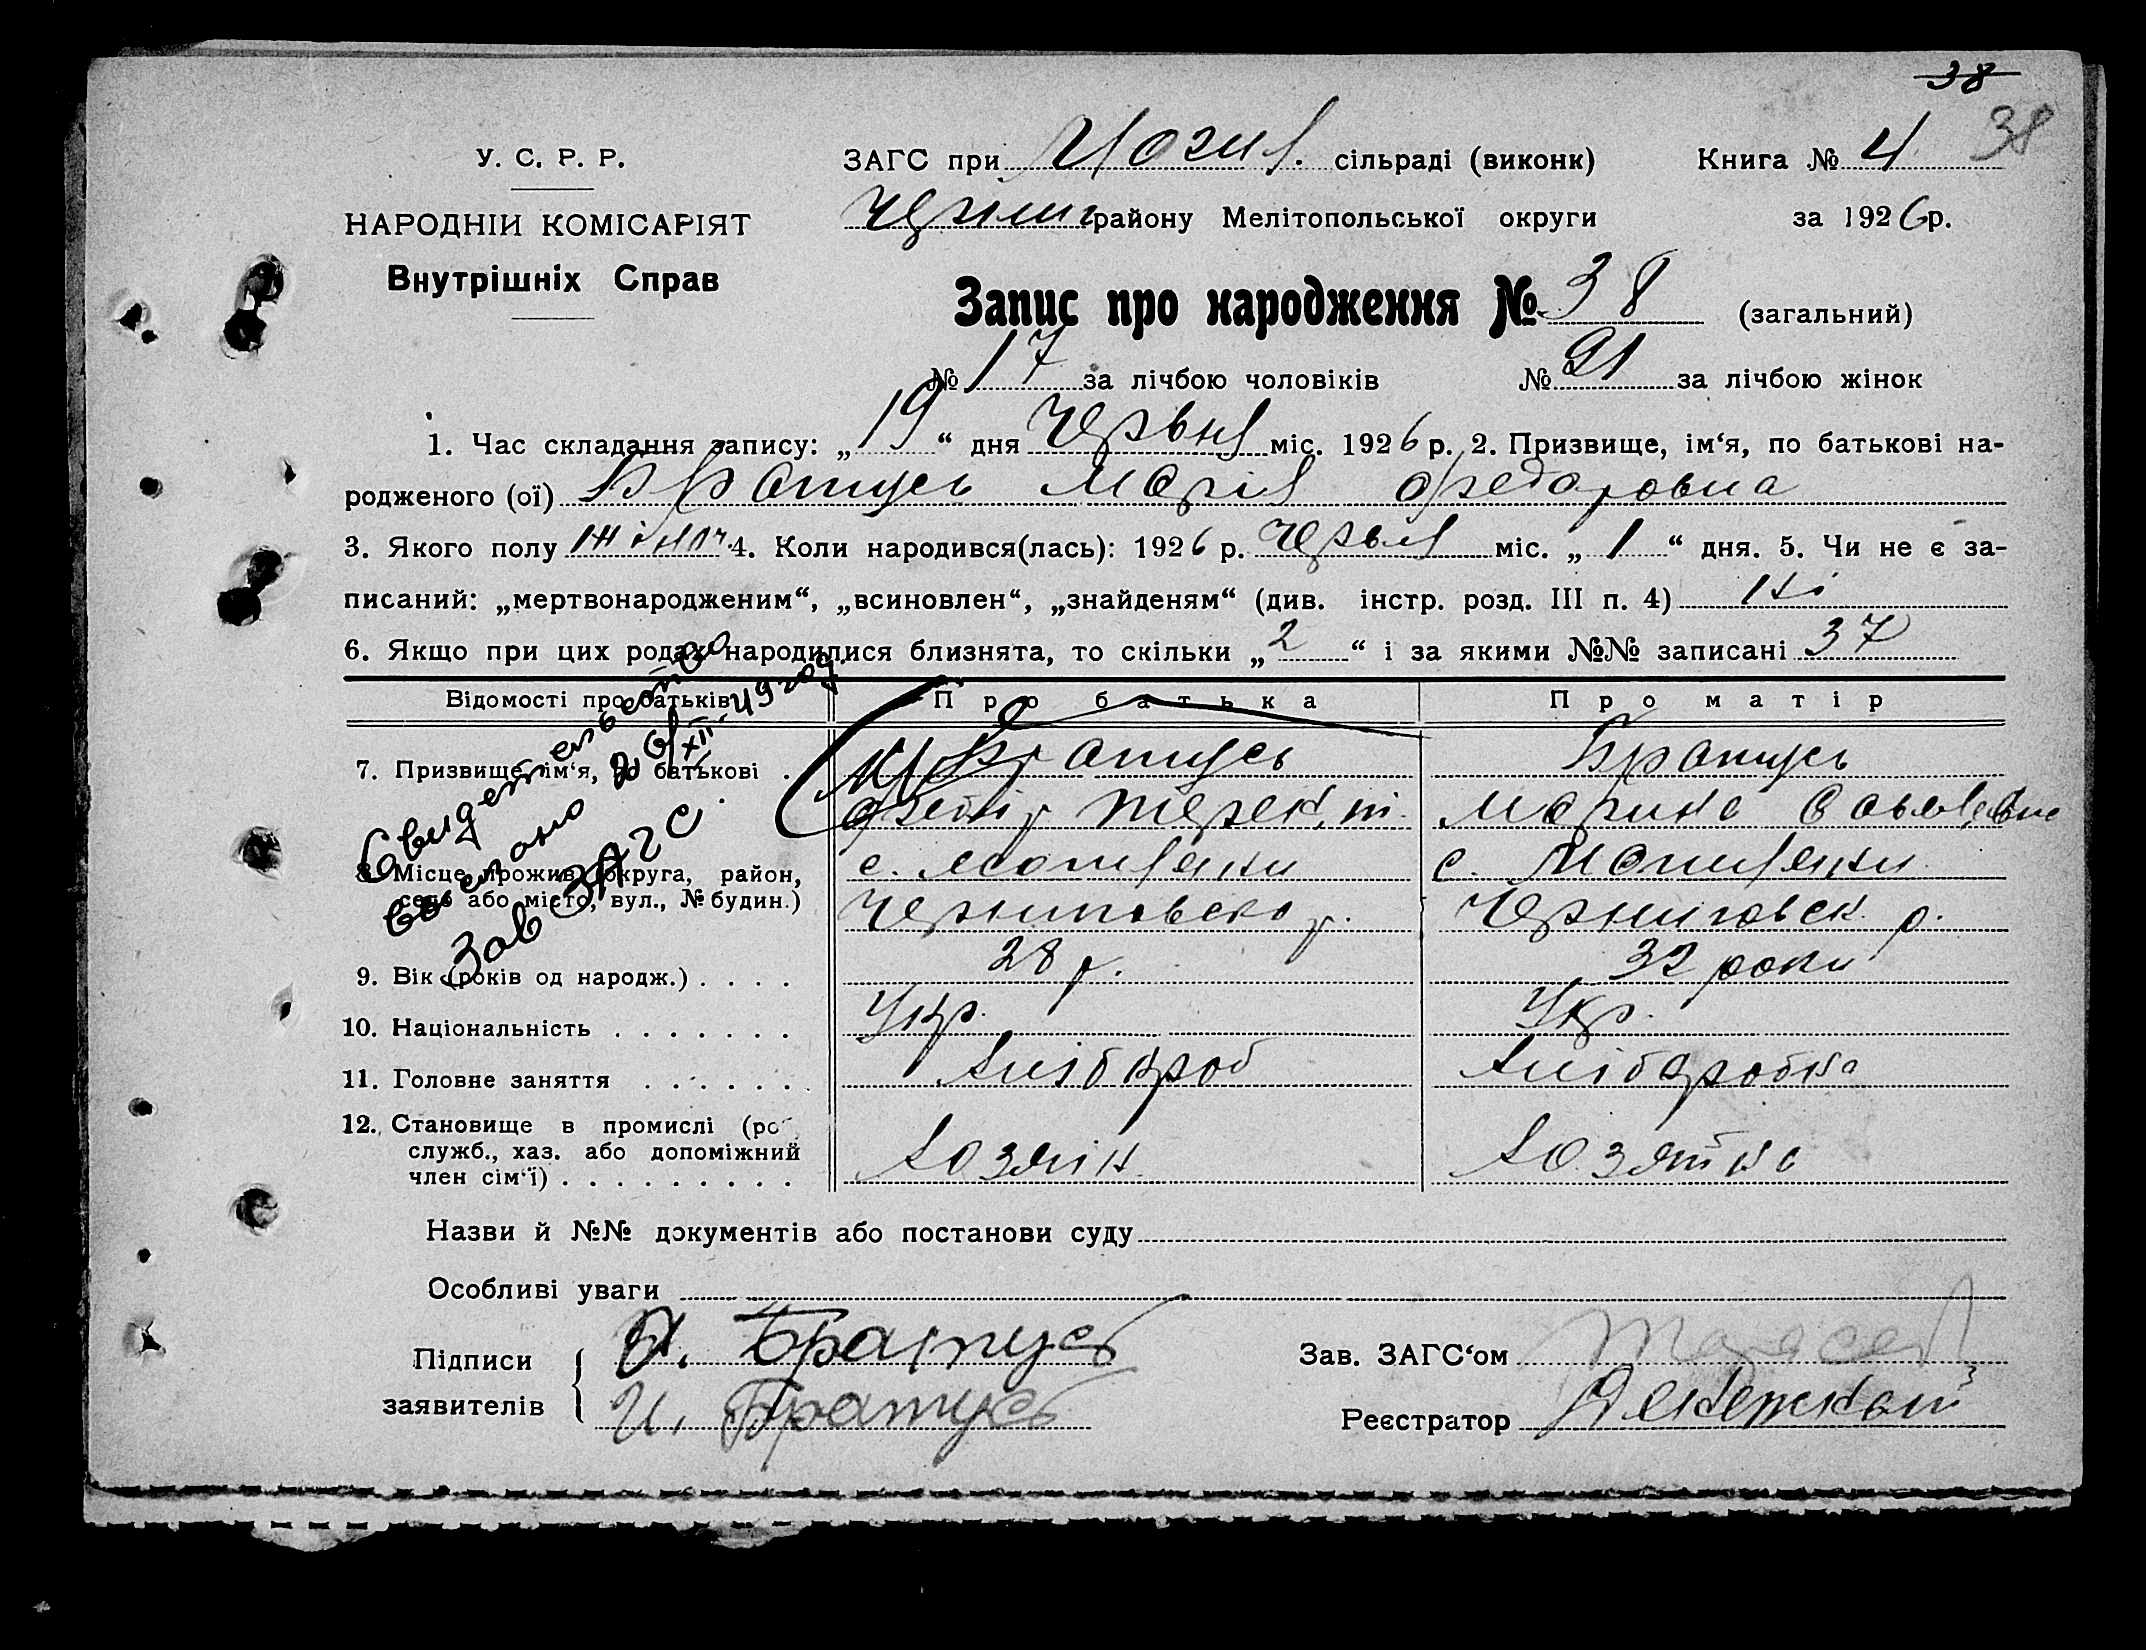 38
38
У. С. Р. Р.
ЗАГС при Могил. сільраді (виконк) Книга № 4
НАРОДНІЙ КОМІСАРІЯТ
Черниг району Мелітопольської округи за 1926 р.
Внутрішніх Справ
Запис про народження № 38 (загальний)
№ 17 за лічбою чоловіків № 21 за лічбою жінок
1. Час складання запису: „19“ дня Червня міс. 1926 р. 2. Призвище, ім‘я, по батькові на-
родженого (ої) Братусь Марія Федоровна
3. Якого полу жіноч. 4. Коли народився(лась): 1926 р. Червня міс. „1“ дня. 5. Чи не є за-
писаний: „мертвонародженим“, „всиновлен“, „знайденям“ (див. інстр. розд. III п. 4) Ні
6. Якщо при цих родах народилися близнята, то скільки „2“ і за якими №№ записані 37
Відомості про батьків Про батька Про матір
7. Призвище, ім‘я, по батькові . Братусь Братусь
Федір Терект. Марина
8. Місце прожив. (округа, район, с. Могиляни с. Могиляни
село або місто, вул., № будин.) Черниговского р. Черниговск. р.
Свидетельство
выслано
XII 49 год.
Зав ЗАГС.
9. Вік (років од народж.) . . . . 28 р. 32 роки
10. Національність . . . . . . . Укр. Укр.
11. Головне заняття . . . . . . . Хлібороб Хліборобка
12. Становище в промислі (роб
служб., хаз. або допоміжний Хозяін Хозяйка
член сім‘ї) . . . . . . . . .
Назви й №№ документів або постанови суду
Особливі уваги
Підписи Братусь Зав. ЗАГС‘ом
заявителів И. Братусь Реєстратор